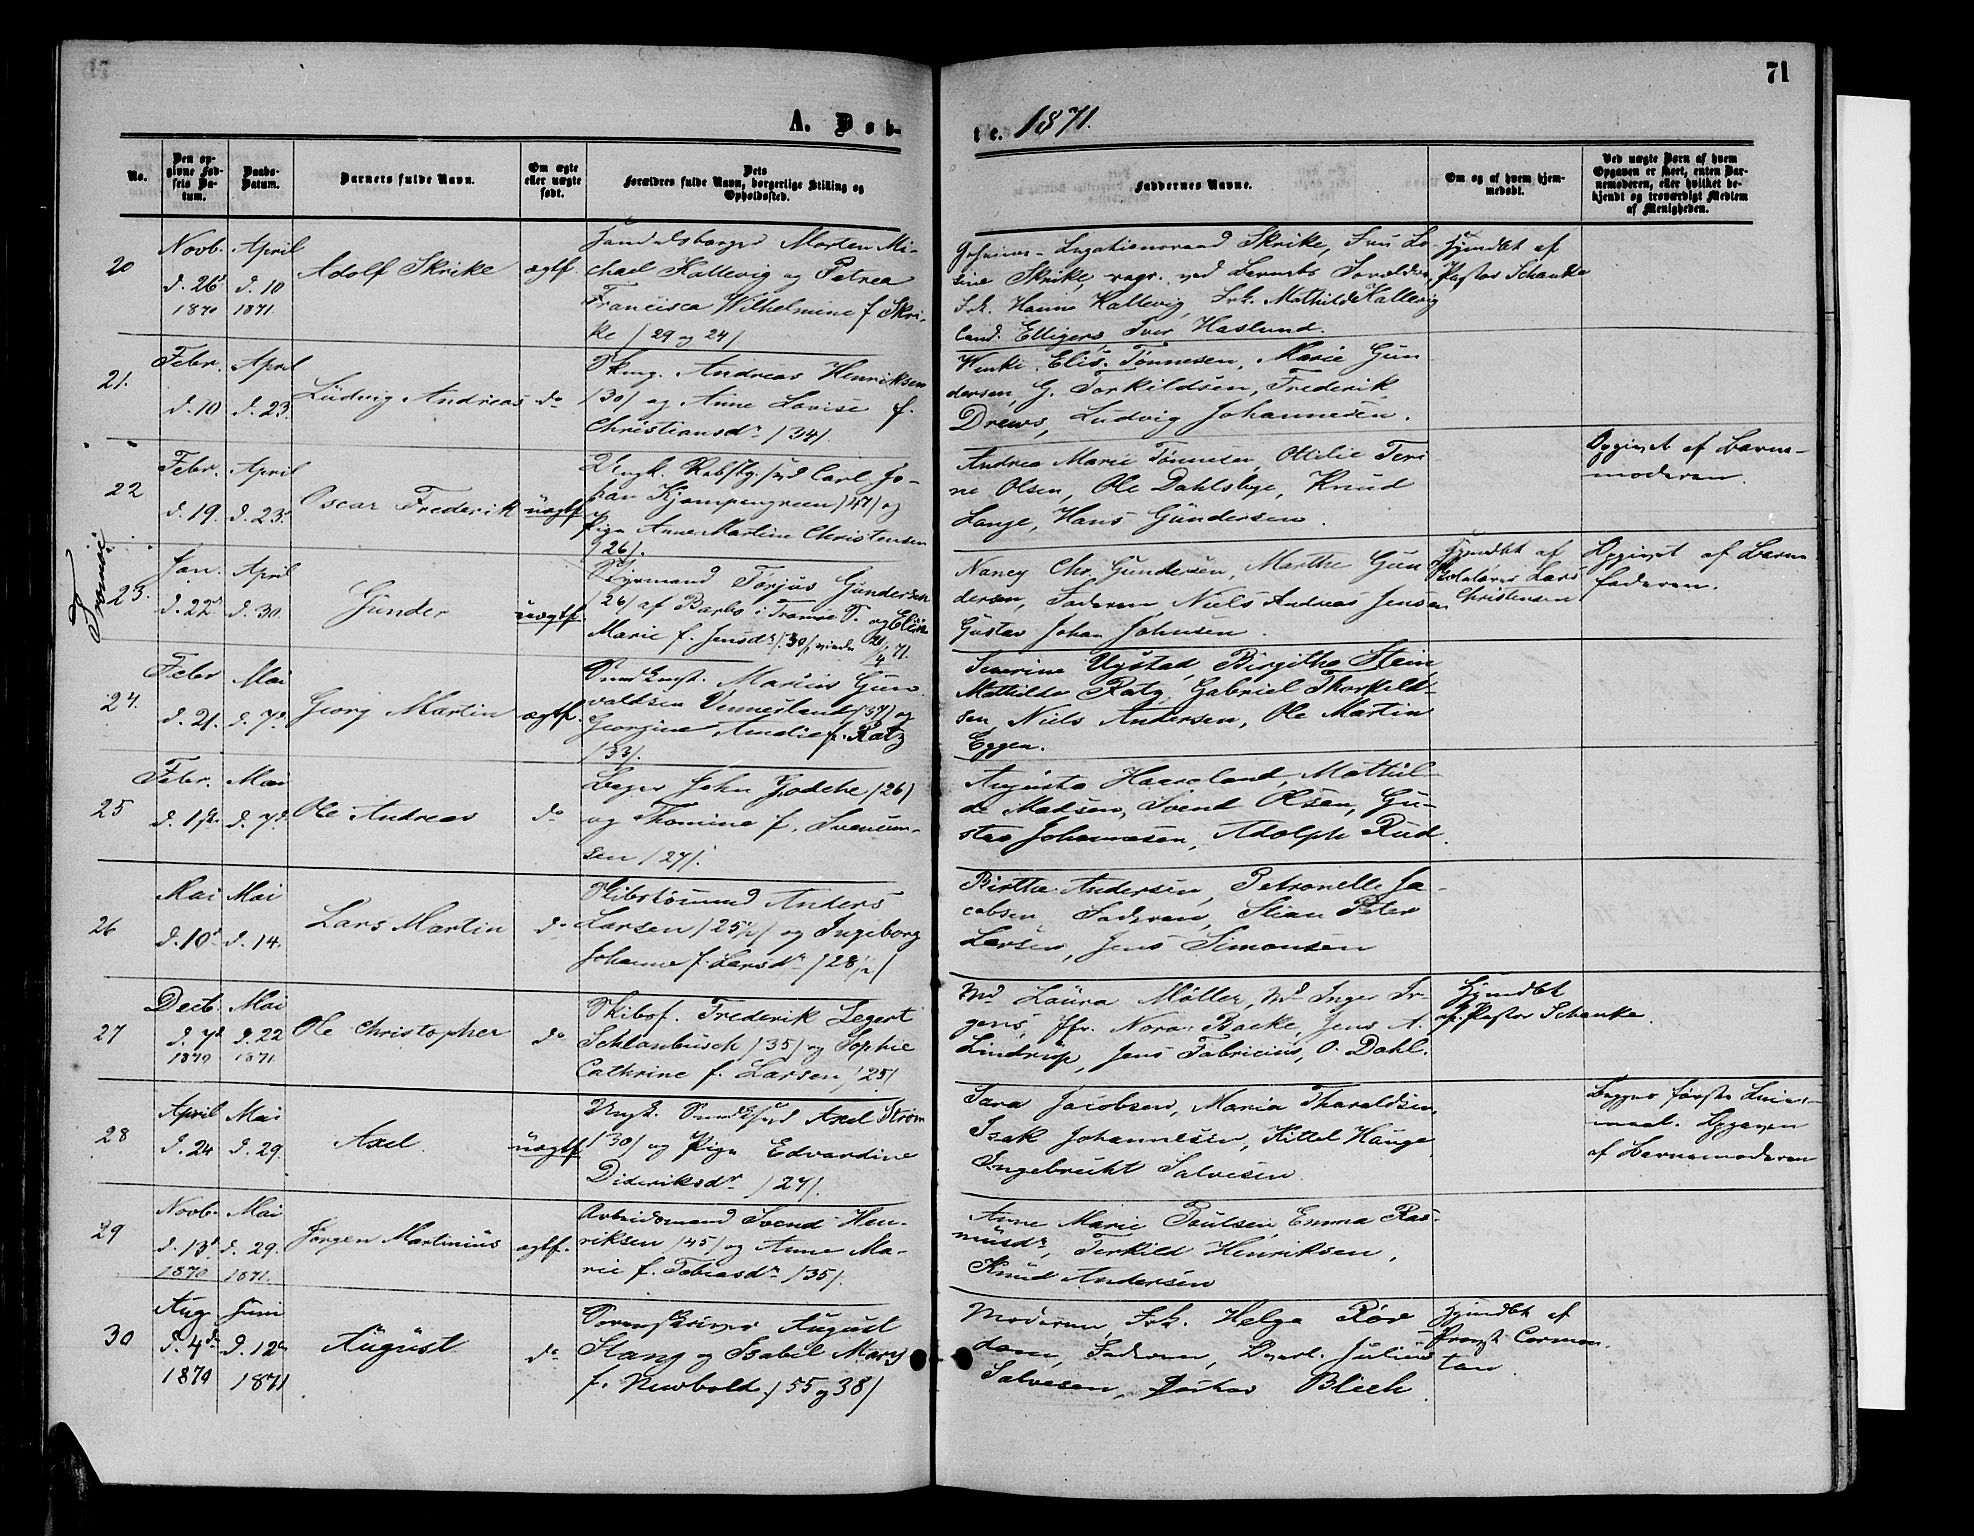 71
A. Døb-
te. 1871.
No.
Den op-
givne Fød-
sels Da-
tum.
Daabs-
Datum.
Barnets fulde Navn.
Om ægte
eller uægte
født.
Dets
Forældres fulde Navn, borgerlige Stilling og
Opholdssted.
Faddernes Navne.
Om og af hvem hjem-
medøbt.
Ved uægte Børn af hvem
Opgaven er skeet, enten Bar-
nemoderen, eller hvilket be-
kjendt og troværdigt Medlem
af Menigheden.
20
Novb.
d. 26de
1870
April
d. 10
1871
Adolf Skrike
ægtf.
Handelsborger Morten Mi-
chael Kallevig og Petrea
Francisca Wilhelmine f. Skri-
ke /29 og 24/
Legationsraad Skrike, Fru Lo-
vine Skrike, repr. ved Barnets Forældre,
Frk. Hanna Kallevig, Frk. Mathilde Kallevig
Cand. Elligers, Iver Haslund.
Hjemdøbt af
Pastor Schanke
21.
Febr.
d. 10
April
d. 23
Ludvig Andreas
do
Andreas Henriksen
/30/ og Anne Lovise f.
Christiansdr /34/.
Wenke Elis. Tønnesen, Marie Gun
dersen, G. Torkildsen, Frederik
Drews, Ludvig Johannesen.
22
Febr.
d. 19.
April
d. 23
Oscar Frederik
uægtf
Ungk. Rebslg.svd Carl Jo-
han Kjempengreen /47/ og
Pige Anne Martine Christensen
/26/.
Andrea Marie Tønnesen, Ottilie Teri
ne Olsen, Ole Dahlsbye, Knud
Lange, Hans Gundersen.
Opgivet af Barne-
moderen.
Tromöe
23.
Jan.
d. 22
April
d. 30.
Gunder
uægtf.
Styrmand Torjus Gundersen
/26/ af Barbo i Tromöe P. og Elise
Marie f. Jensdr /30/, viede 21/4 71.
Nancy Chr. Gundersen, Marthe Gun
dersen, Faderen Niels Andreas Jensen
Gustav Johan Johnsen.
Hjemdøbt af
Lars
Christensen
Opgivet af Barne
faderen.
24.
Febr
d. 21.
Mai
d. 7de
Georg Martin
ægtf.
Marius Gun
valdsen Vennesland /37/ og
Georgine Amalie f. Ratz
/33/.
Severine Ugstad, Birgithe Stein,
Mathilde Ratz, Gabriel Thorkeld-
sen, Niels Andersen, Ole Martin
Eggen.
25
Febr.
d.
Mai
d. 7de
Ole Andreas
do
Bager John Godche /26/
og Thomine f. Svenum-
sen /27/.
Augusta Haaveland, Mathil-
de Madsen, Svend Olsen, Gu-
stav Johannesen, Adolph Rud.
26
Mai
d. 10de
Mai
d. 14.
Lars Martin
do
Skibstømmd Anders
Larsen /25 1/2/ og Ingeborg
Johanne f. Larsdr /28 1/2/
Birthe Andersen, Petronelle Ja-
cobsen, Faderen, Stian Peter
Larsen, Jens Simonsen
27
Decb.
d. 7de
1870
Mai
d. 22
1871
Ole Christopher
do
Skibsf. Frederik Segert
Schlanbusch /35/ og Sophie
Cathrine f. Larsen /25/
Md Laura Møller, Md Inger Jr
gens, Jfr. Nora Backe, Jens A.
Lindrup, Jens Fabricius, O. Dahl.
Hjemdøbt
af Pastor Schanke.
28
April
d. 24
Mai
d. 29.
Axel.
uægtf
Ungk. Axel Strøm
/30/ og Pige Edvardine
Dideriksdr /27/.
Sara Jacobsen, Maria Tharaldsen
Isak Johannesen, Kittel Hauge
Ingebreckt Salvesen.
Begges første Leier-
maal. Opgaven
af Barnemoderen
29
Novb.
d. 13de
1870
Mai
d. 29.
1871.
Jørgen Martinius
ægtf.
Arbeidsmand Svend Hen-
riksen /45/ og Anne Ma-
rie f. Tobiasdr /35/.
Anne Marie Poulsen, Emma Ras-
musdr, Terkild Henriksen,
Knud Andersen
30
Aug
d. 4de
1870
Juni
d. 12te
1871
August
do
Sorenskriver August
Stang og Isabel Mary
f. Newbold. /55 og 38/
Moderen, Frk. Helga Rør
dam, Faderen, Julius
Salvesen, Blich.
Hjemdøbt af
Provst Corman
tan